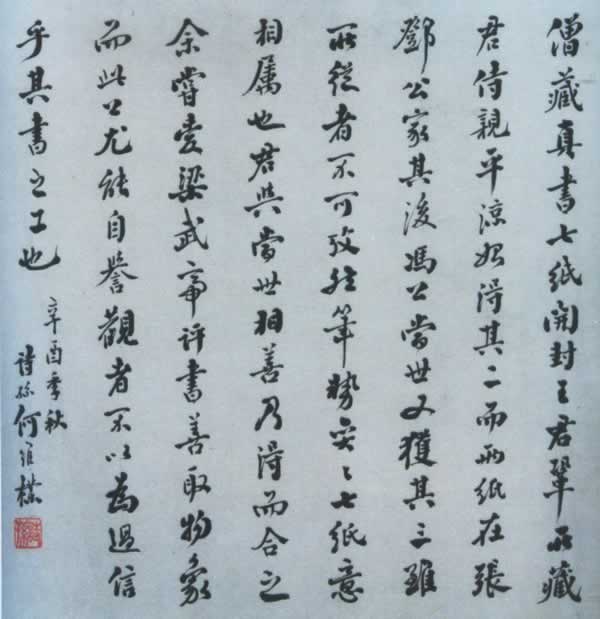 僧藏真書七紙開封王君鞏所藏
君侍親平涼始得其二而兩紙在張
鄧公家其後馮公當世又獲其三雖
所從者不可攷然筆勢奕々七紙意
相屬也君與當世相善乃得而合之
余嘗愛梁武帝評書善取物象
而此公尤能自譽觀者不以為過信
乎其書之工也
辛酉季秋
詩孫何維樸